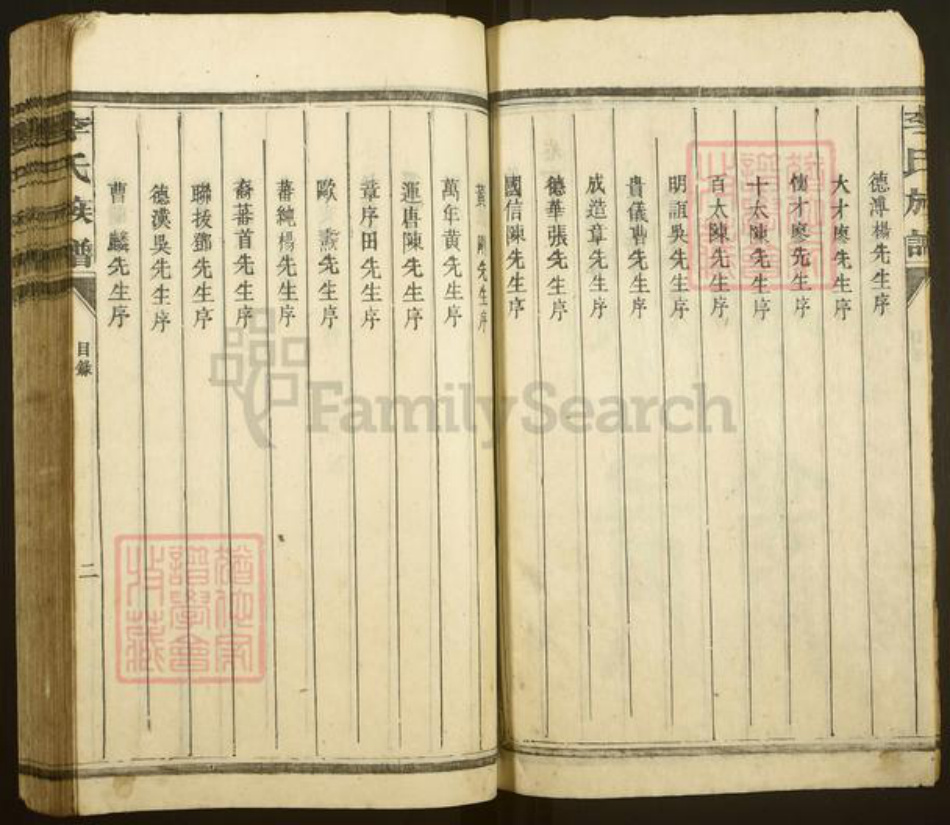 李氏族譜
德溥楊先生序
大才廖先生序
才廖先生序
十太陳先生序
百太陳先生序
明誼吳先生序
貴儀曹先生序
成造章先生序
德華張先生序
國信陳先生序
先生序
萬年黄先生序
運唐陳先生序
章序田先生序
歐 先生序
蕃純楊先生序
裔蕃首先生序
聯拔鄧先生序
德漢吳先生序
曹 麟先生序
李氏族譜
目錄
二
譜學會
收藏
FamilySearch